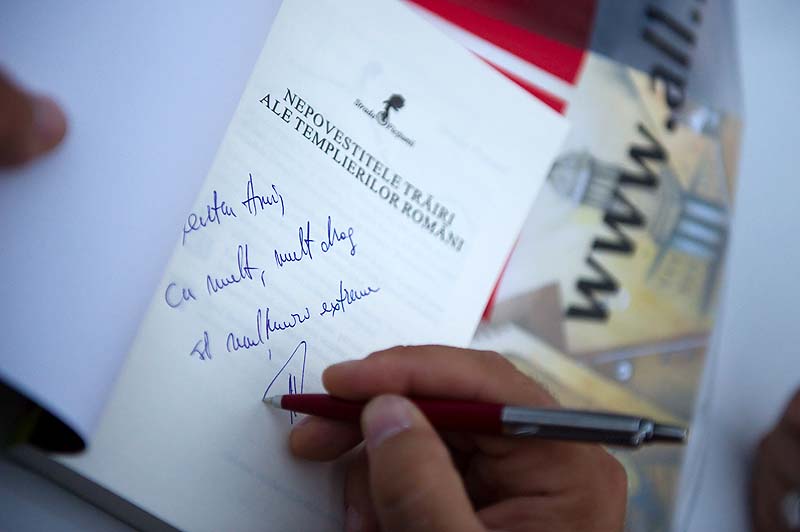 Strada Ficțiunii
NEPOVESTITELE TRĂIRI
ALE TEMPLIERILOR ROMÂNI
pentru
Cu mult, mult drag
și mulțumiri extreme
www.all.